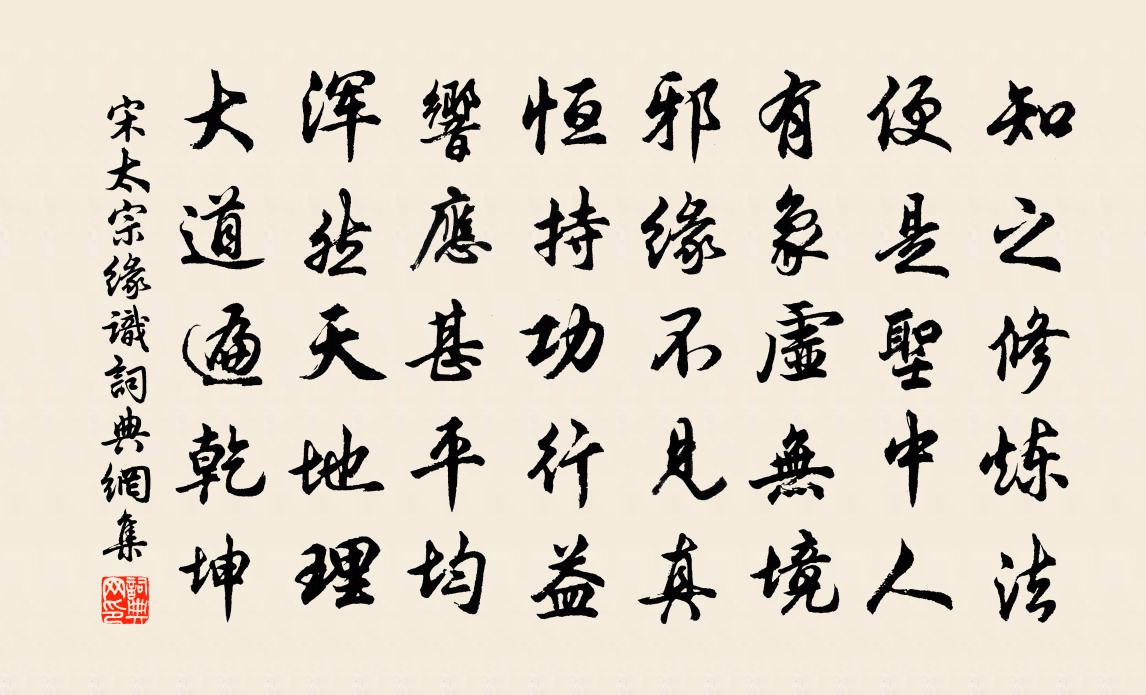 知之修炼法
便是聖中人
有象虛無境
邪缘不見真
恒持功行益
響應甚平均
浑然天地理
大道遍乾坤
宋太宗缘識詞典網集
詞典網印